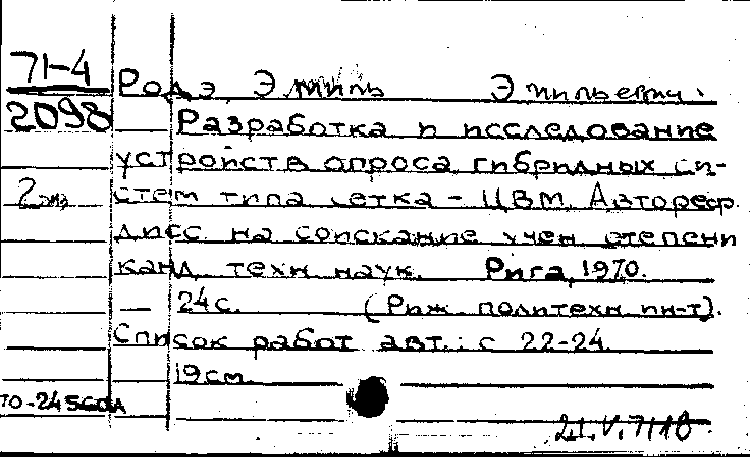 71-4
2098
2 экз
Родэ, Эмиль Эмильевич.
Разработка и исследование
устройств опроса гибридных си-
стем типа сетка - ЦВМ. Автореф.
дисс. на соискание учен степени
канд. техн. наук. Рига, 1970.
— 24 с. (Риж. политехн. ин-т).
Список работ авт.: с 22-24.
19 см.
70-245
21.V.71